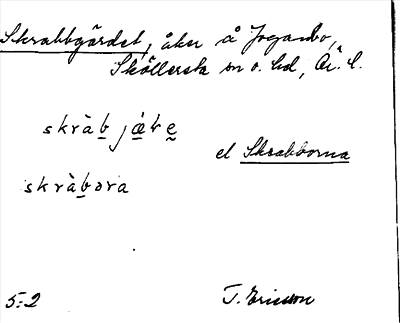 Skrabbgärdet, åker å Joganbo,
Sköllersta sn o. hd, Ör. l.
skràb jæ̀be̬
el Skrabborna
skràbɔra
5:2 T. Ericsson